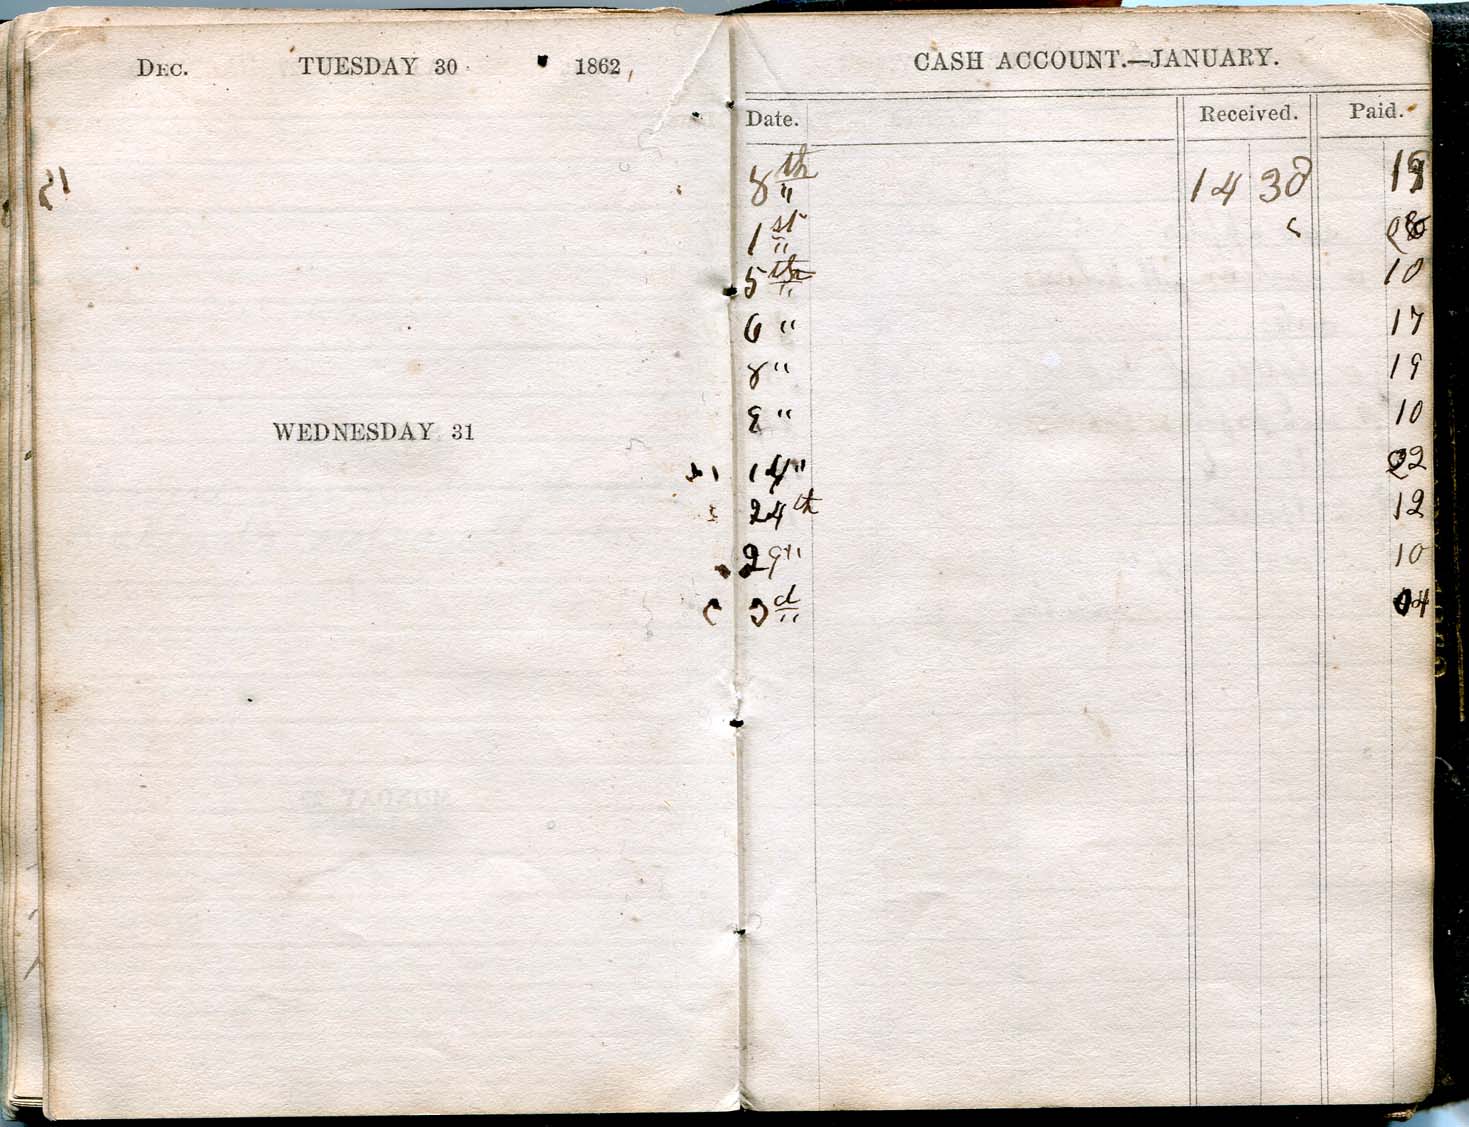 DEC. TUESDAY 30 1862
WEDNESDAY 31
CASH ACCOUNT.—JANUARY.
Date. Received. Paid.
8th " 14 38
1st "
5th " 10
6 " 17
8 " 19
8 " 10
14 " 22
24th 12
29 " 10
3d " 04